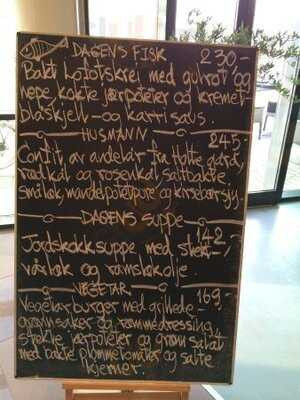 DAGENS FISK 230,-
Bakt Lofotskrei med gulrot og
nepe kokte jærpoteter og kremet
blåskjell- og karrisaus.
HUSMANN 245,-
Confit av andelår fra Holte gård,
rødkål og rosenkål, saltbakte
småløk, mandelpotetpure og kirsebærsjy.
DAGENS SUPPE
Jordskokksuppe med stekt 142,-
vårløk og ramsløkolje.
VEGETAR 169,-
Vegetarburger med grillede
grønnsaker og rømmedressing
stekte jærpoteter og grønn salat
med bakte plommetomater og salte
kjerner.